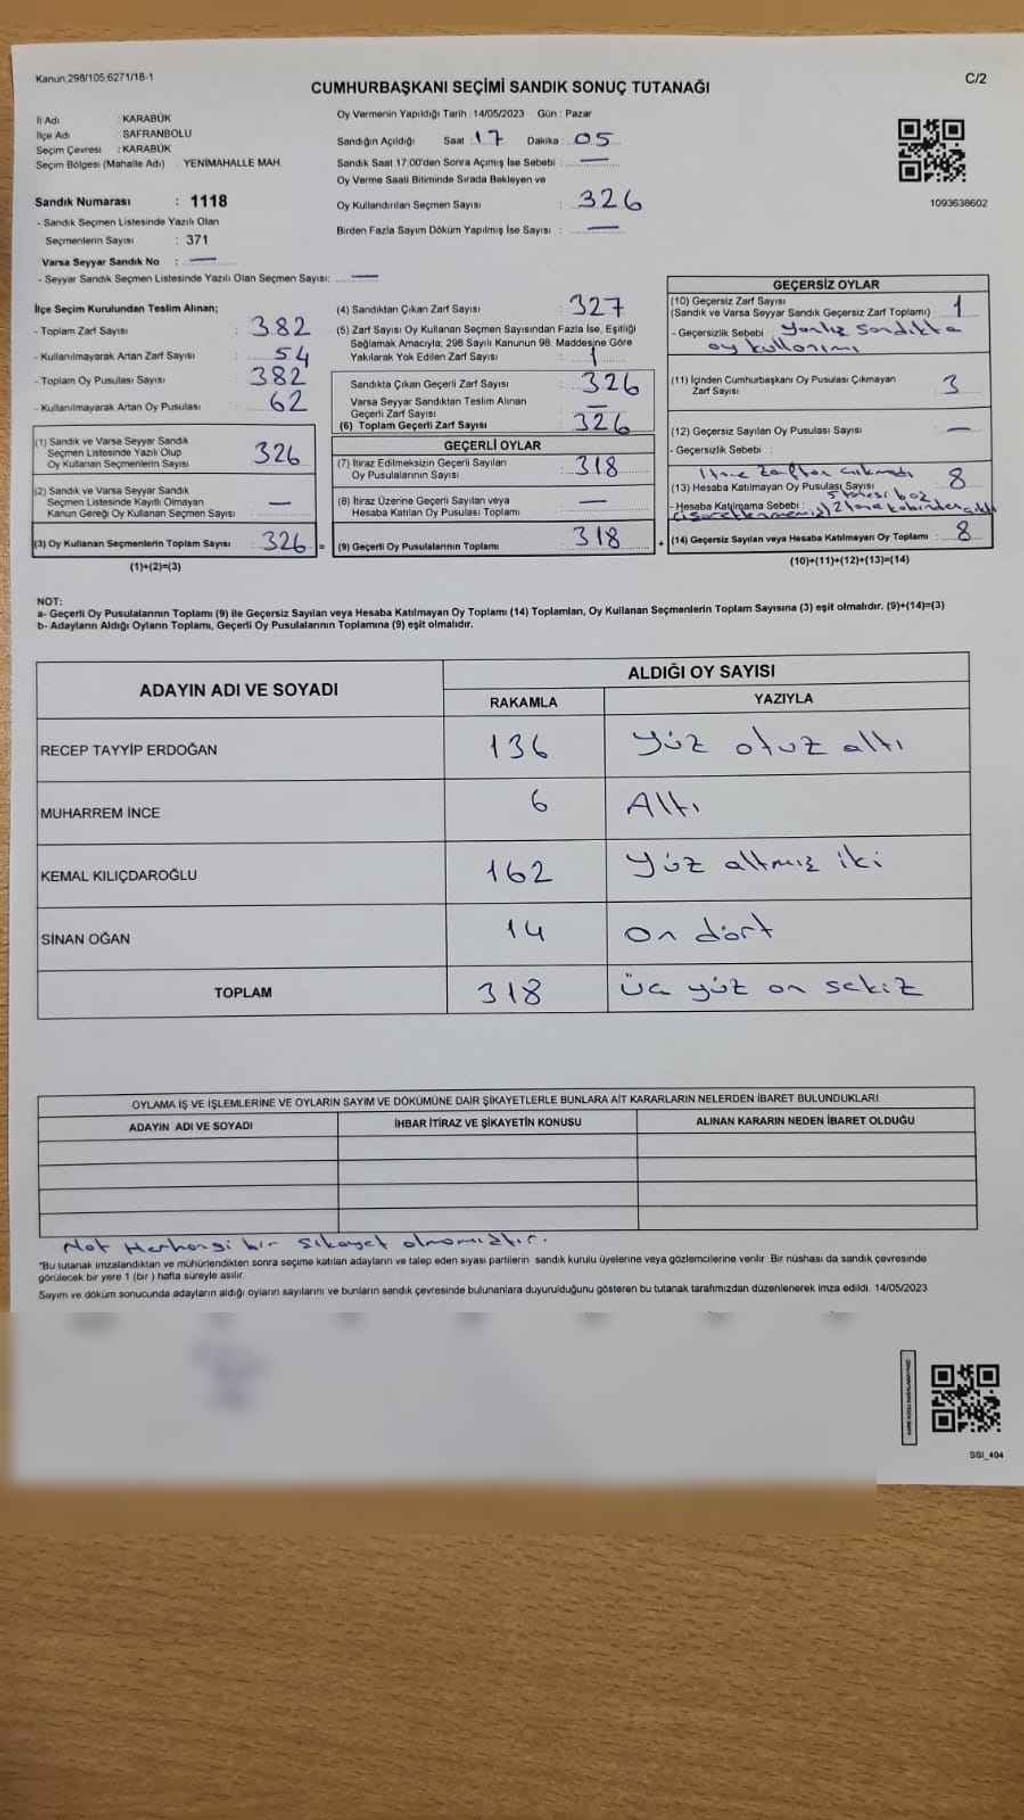 Kanun:298/105;6271/18-1
C/2
CUMHURBAŞKANI SEÇİMİ SANDIK SONUÇ TUTANAĞI
İl Adı : KARABÜK
İlçe Adı : SAFRANBOLU
Seçim Çevresi : KARABÜK
Seçim Bölgesi (Mahalle Adı) YENİMAHALLE MAH.
Sandık Numarası : 1118
- Sandık Seçmen Listesinde Yazılı Olan
Seçmenlerin Sayısı : 371
Varsa Seyyar Sandık No : —
- Seyyar Sandık Seçmen Listesinde Yazılı Olan Seçmen Sayısı: —
Oy Vermenin Yapıldığı Tarih : 14/05/2023 Gün : Pazar
Sandığın Açıldığı Saat : 17 Dakika : 05
Sandık Saat 17:00'den Sonra Açılmış İse Sebebi : —
Oy Verme Saati Bitiminde Sırada Bekleyen ve
Oy Kullandırılan Seçmen Sayısı : 326
Birden Fazla Sayım Döküm Yapılmış İse Sayısı : —
1093638602
İlçe Seçim Kurulundan Teslim Alınan;
- Toplam Zarf Sayısı : 382
- Kullanılmayarak Artan Zarf Sayısı : 54
- Toplam Oy Pusulası Sayısı : 382
- Kullanılmayarak Artan Oy Pusulası : 62
(1) Sandık ve Varsa Seyyar Sandık
Seçmen Listesinde Yazılı Olup
Oy Kullanan Seçmenlerin Sayısı : 326
(2) Sandık ve Varsa Seyyar Sandık
Seçmen Listesinde Kayıtlı Olmayan
Kanun Gereği Oy Kullanan Seçmen Sayısı : —
(3) Oy Kullanan Seçmenlerin Toplam Sayısı : 326 =
(1)+(2)=(3)
(4) Sandıktan Çıkan Zarf Sayısı : 327
(5) Zarf Sayısı Oy Kullanan Seçmen Sayısından Fazla İse, Eşitliği
Sağlamak Amacıyla; 298 Sayılı Kanunun 98. Maddesine Göre
Yakılarak Yok Edilen Zarf Sayısı : 1
Sandıkta Çıkan Geçerli Zarf Sayısı : 326
Varsa Seyyar Sandıktan Teslim Alınan
Geçerli Zarf Sayısı : —
(6) Toplam Geçerli Zarf Sayısı : 326
GEÇERLİ OYLAR
(7) İtiraz Edilmeksizin Geçerli Sayılan
Oy Pusulalarının Sayısı : 318
(8) İtiraz Üzerine Geçerli Sayılan veya
Hesaba Katılan Oy Pusulası Toplamı : —
(9) Geçerli Oy Pusulalarının Toplamı : 318 +
GEÇERSİZ OYLAR
(10) Geçersiz Zarf Sayısı
(Sandık ve Varsa Seyyar Sandık Geçersiz Zarf Toplamı) : 1
- Geçersizlik Sebebi : Yanlış sandıkta
oy kullanımı
(11) İçinden Cumhurbaşkanı Oy Pusulası Çıkmayan
Zarf Sayısı : 3
(12) Geçersiz Sayılan Oy Pusulası Sayısı : —
- Geçersizlik Sebebi :
zarftan çıkmadı
(13) Hesaba Katılmayan Oy Pusulası Sayısı : 8
5 tanesi boş
- Hesaba Katılmama Sebebi : 2 tane kabinden
(14) Geçersiz Sayılan veya Hesaba Katılmayan Oy Toplamı : 8
(10)+(11)+(12)+(13)=(14)
NOT:
a- Geçerli Oy Pusulalarının Toplamı (9) ile Geçersiz Sayılan veya Hesaba Katılmayan Oy Toplamı (14) Toplamları, Oy Kullanan Seçmenlerin Toplam Sayısına (3) eşit olmalıdır. (9)+(14)=(3)
b- Adayların Aldığı Oyların Toplamı, Geçerli Oy Pusulalarının Toplamına (9) eşit olmalıdır.
ADAYIN ADI VE SOYADI
ALDIĞI OY SAYISI
RAKAMLA YAZIYLA
RECEP TAYYİP ERDOĞAN 136 Yüz otuz altı
MUHARREM İNCE 6 Altı
KEMAL KILIÇDAROĞLU 162 Yüz altmış iki
SİNAN OĞAN 14 On dört
TOPLAM 318 Üç yüz on sekiz
OYLAMA İŞ VE İŞLEMLERİNE VE OYLARIN SAYIM VE DÖKÜMÜNE DAİR ŞİKAYETLERLE BUNLARA AİT KARARLARIN NELERDEN İBARET BULUNDUKLARI
ADAYIN ADI VE SOYADI İHBAR İTİRAZ VE ŞİKAYETİN KONUSU ALINAN KARARIN NEDEN İBARET OLDUĞU
Not Herhangi bir şikayet olmamıştır.
"Bu tutanak imzalandıktan ve mühürlendikten sonra seçime katılan adayların ve talep eden siyasi partilerin sandık kurulu üyelerine veya gözlemcilerine verilir. Bir nüshası da sandık çevresinde
görülecek bir yere 1 (bir ) hafta süreyle asılır.
Sayım ve döküm sonucunda adayların aldığı oyların sayılarını ve bunların sandık çevresinde bulunanlara duyurulduğunu gösteren bu tutanak tarafımızdan düzenlenerek imza edildi. 14/05/2023
SGI_404